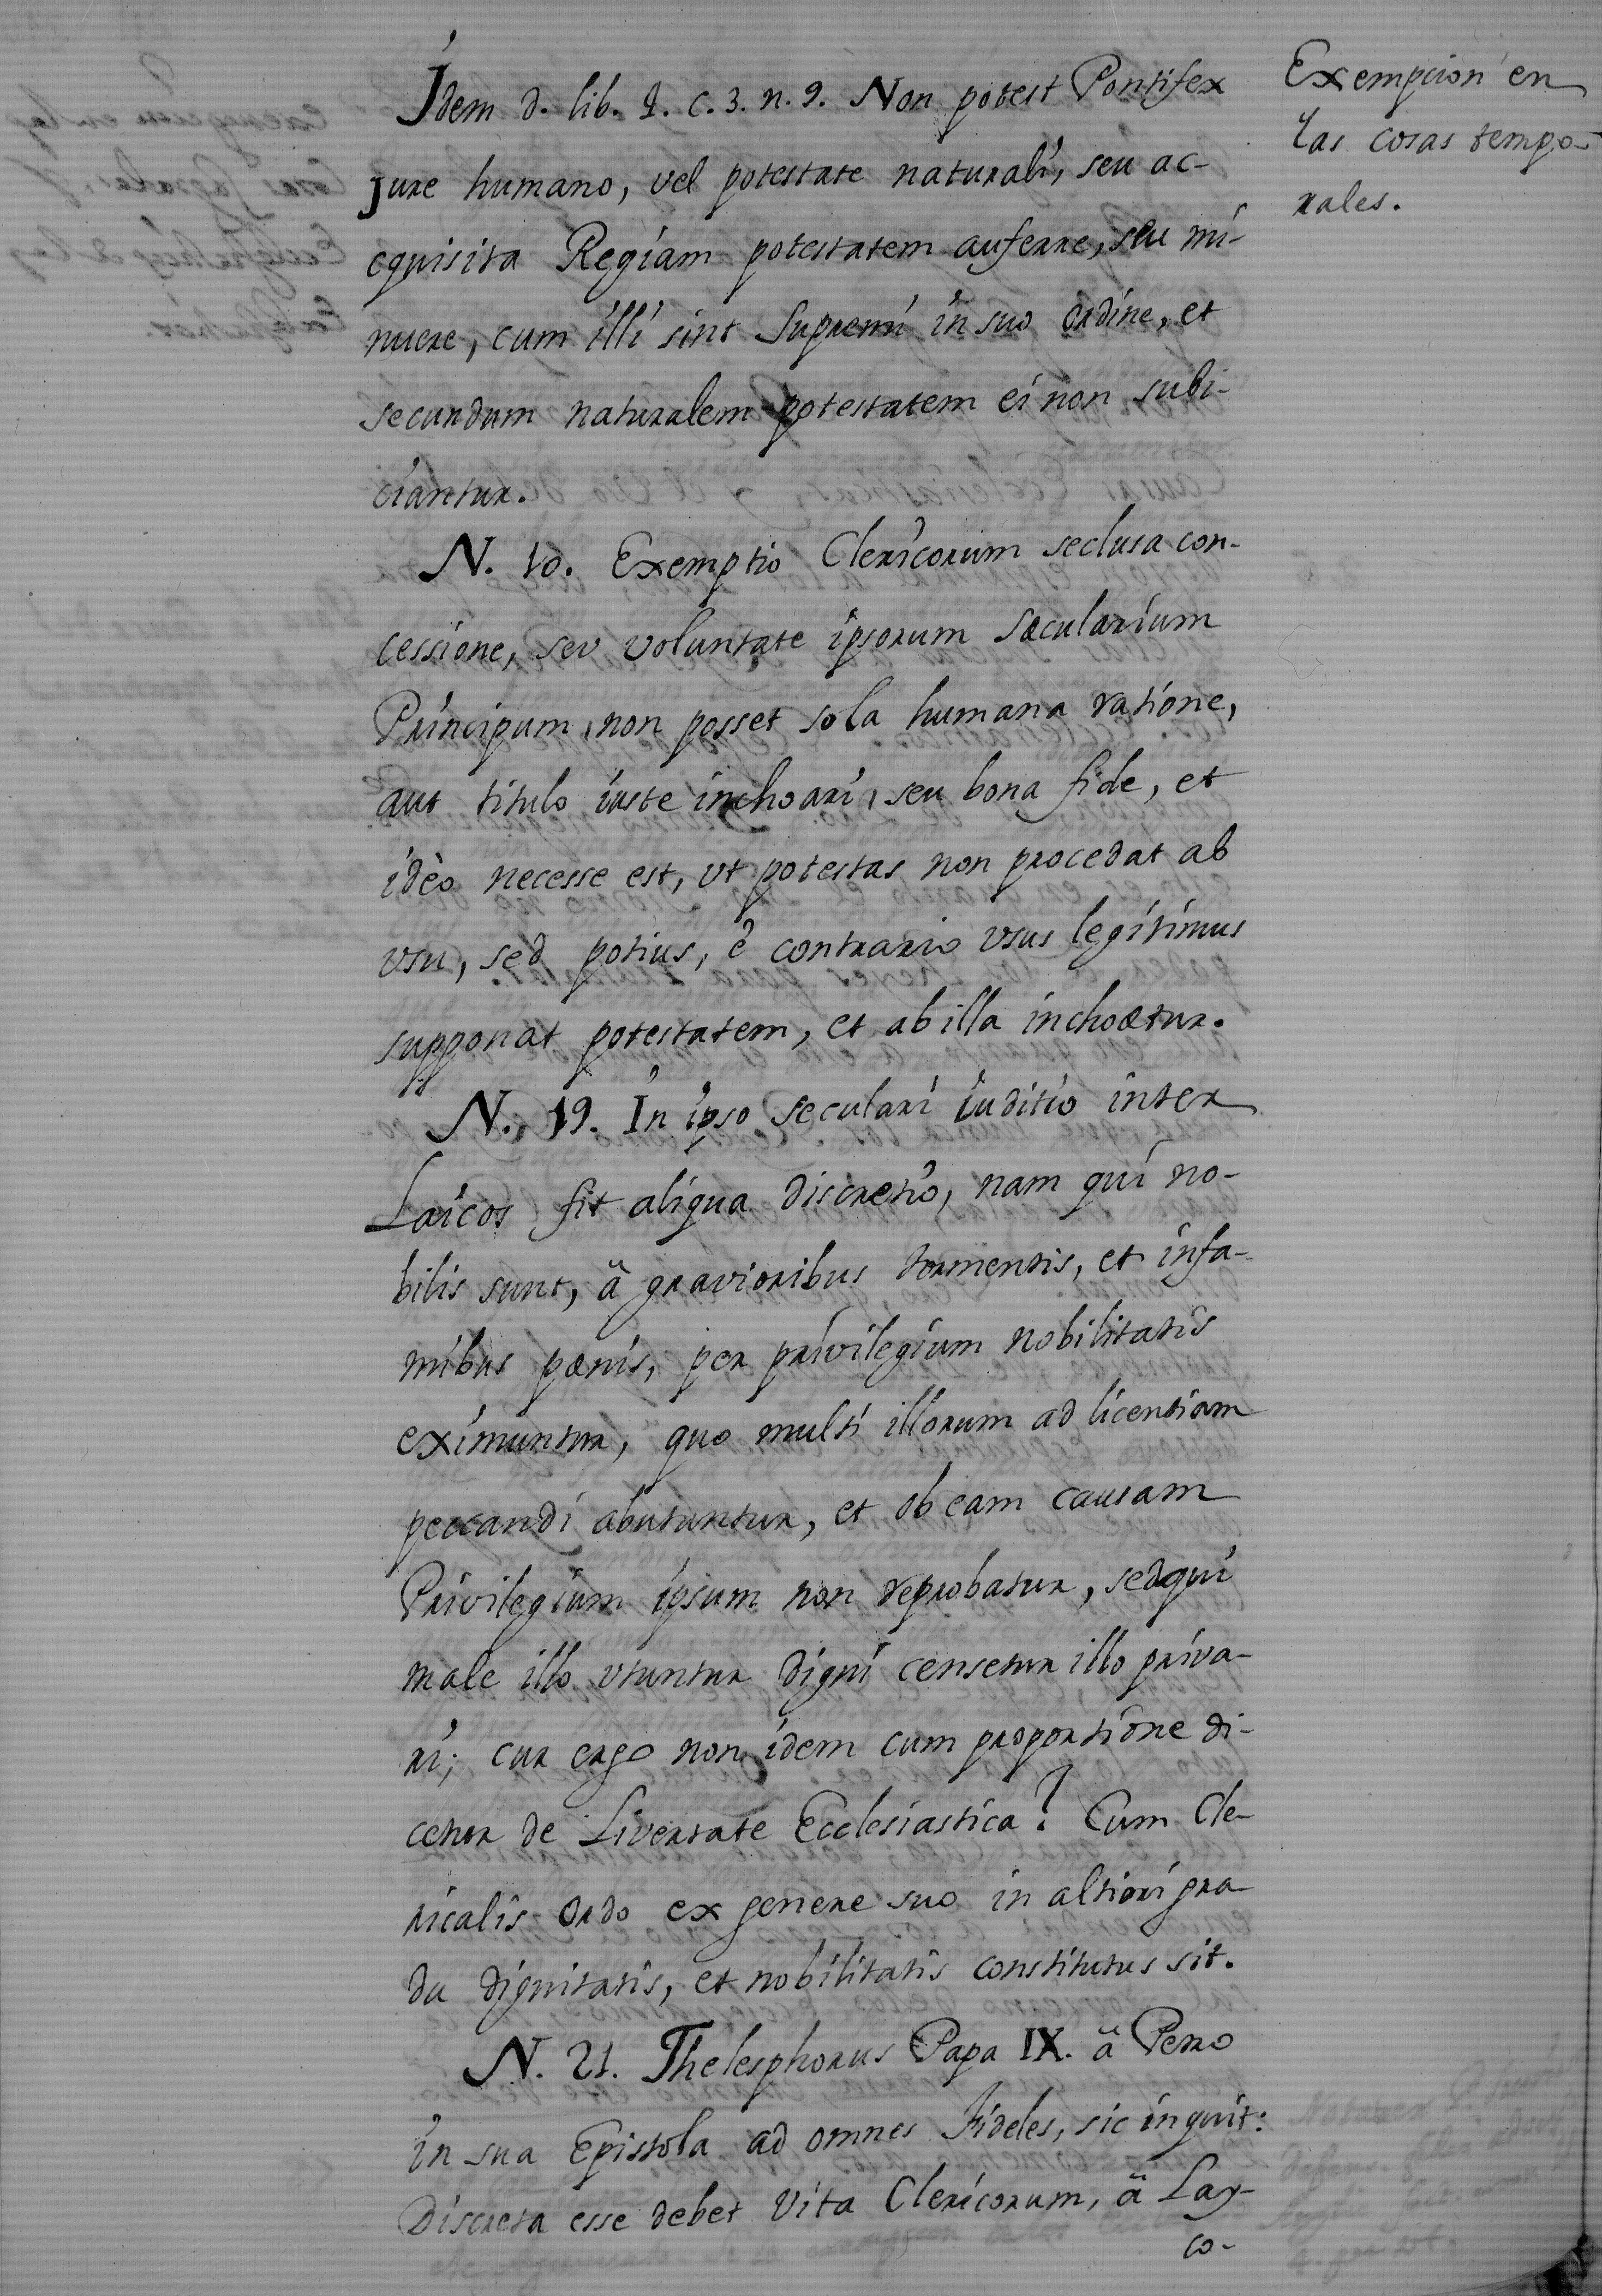 Idem d. lib. 4. c. 3. n. 9. Non potest Pontifex
Jure humano, vel potestate naturali, seu ac-
cquisita Regiam potestatem auferre, seu mi-
nuere, cum illi sint Supremi in suo ordine, et
secundum naturalem potestatem ei non subi-
ciantur.
N. 10. Exemptio Clericorum seclusa con-
cessione, sev voluntate ipsorum sæcularium
Principum, non posset sola humana ratione,
aut titulo iuste inchoari, seu bona fide, et
ideò necesse est, vt potestas non procedat ab
vsu, sed potius, è contrario vsus legitimus
supponat potestatem, et ab illa inchoetur.
N. 19. In ipso seculari iuditio inter
Laicos fit aliqua discretio, nam qui no-
bilis sunt, â gravioribus tormentis, et infa-
mibus pœnis, per privilegium nobilitatis
eximuntur, quo multi illorum ad licentiam
peccandi abutuntur, et ob eam causam
Privilegium ipsum non reprobatur, sed qui
male illo vtuntur digni censetur illo priva-
ri; cur ergo non idem cum proportione di-
cetur de Livertate Ecclesiastica? Cum Cle-
ricalis ordo ex genere suo in altiori gra-
du dignitatis, et nobilitatis constitutus sit.
N. 21. Thelesphorus Papa IX. â Petro
in sua Epistola ad omnes fideles, sic inquit:
Discreta esse debet Vita Clericorum, â Lay-
co-
Exempcion en
las cosas tempo-
rales.